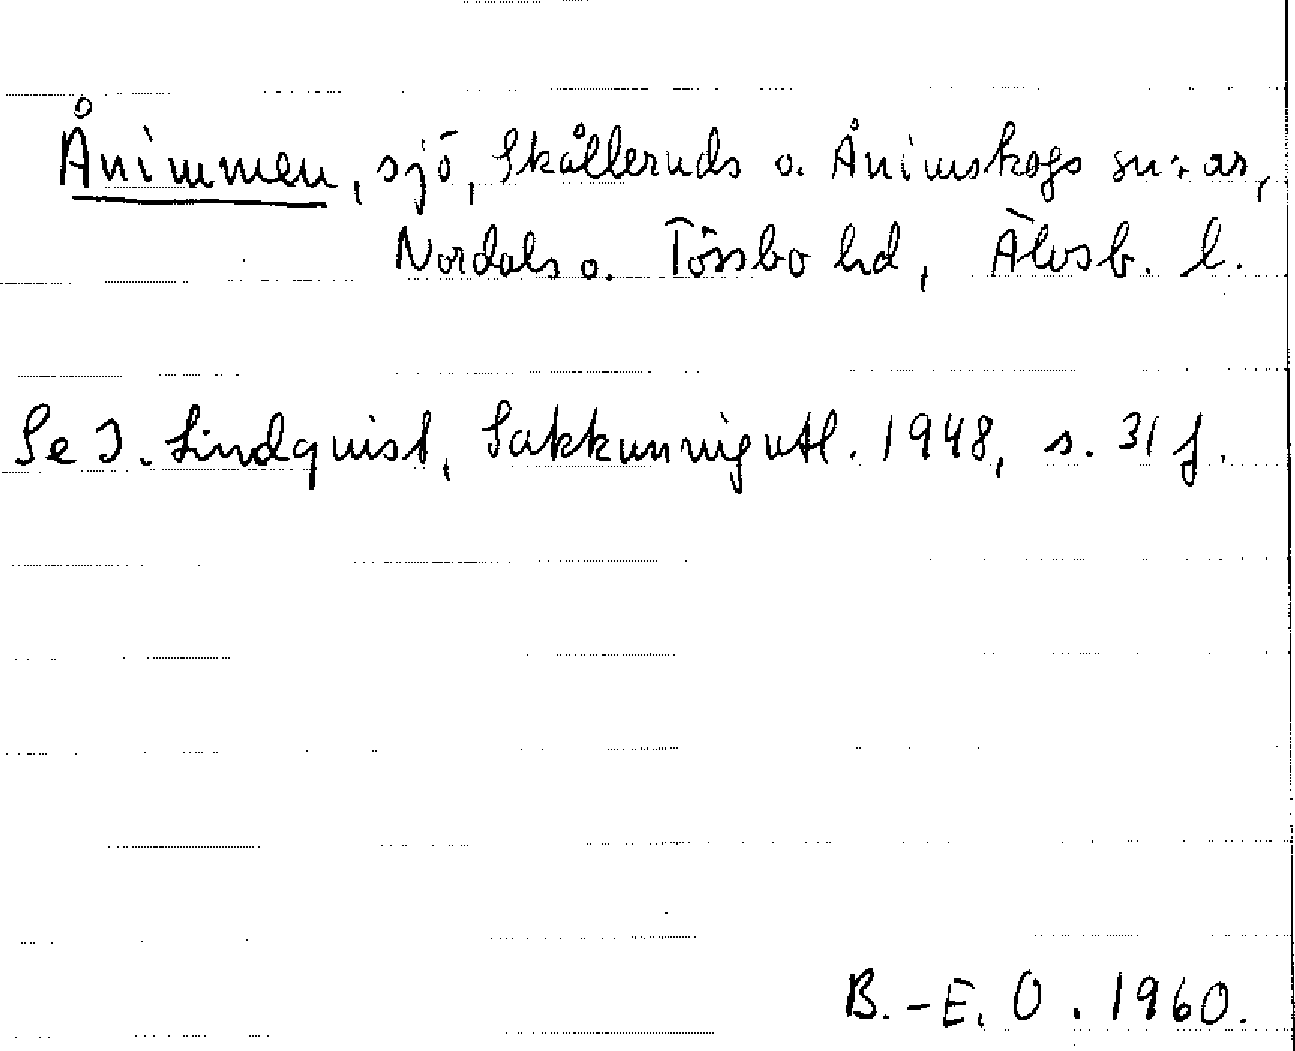 Ånimmen, sjö, Skålleruds o. Ånimskogs sn:ar,
Nordals o. Tössbo hd, Älvsb. l.
Se I. Lindquist, Sakkunnigutl. 1948, s. 31 f.
B.-E. O. 1960.